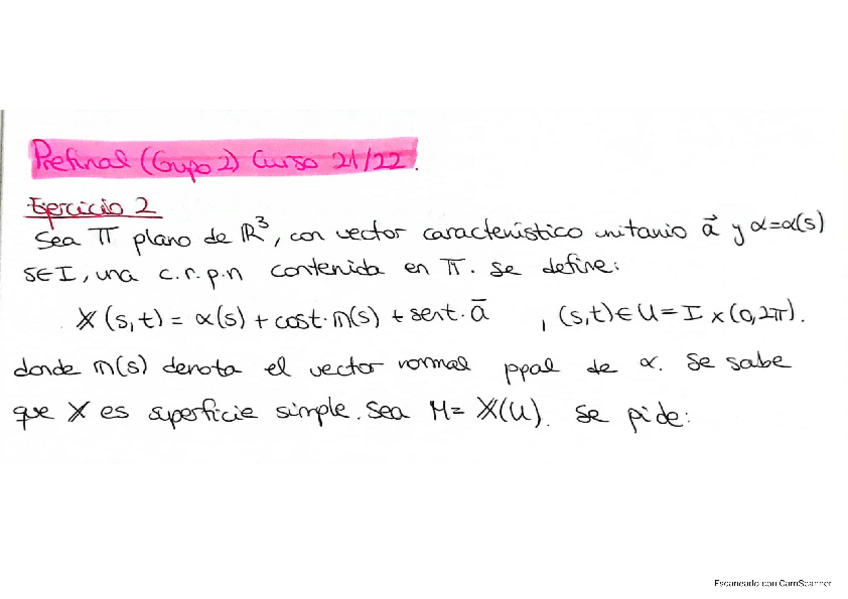 Prefinal (Grupo 2) Curso 21/22.
Ejercicio 2
Sea Π plano de ℝ³, con vector característico unitario a⃗ y α=α(s)
s∈I, una c.r.p.n contenida en Π. Se define:
𝕏(s,t) = α(s) + cost·𝕟(s) + sent·a⃗ , (s,t)∈U = I x (0,2π).
donde 𝕟(s) denota el vector normal ppal de α. Se sabe
que 𝕏 es superficie simple. Sea M= 𝕏(U). Se pide:
Escaneado con CamScanner